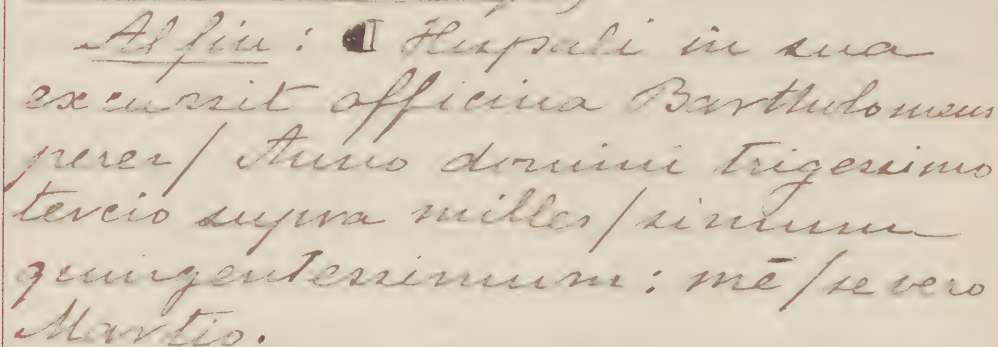 Al fin: ¶ Hispali in sua
excussit officina Bartholomeus
perez/ Anno domini trigessimo
tercio supra milles/simum
quingentessimum: mē/se vero
Martio.